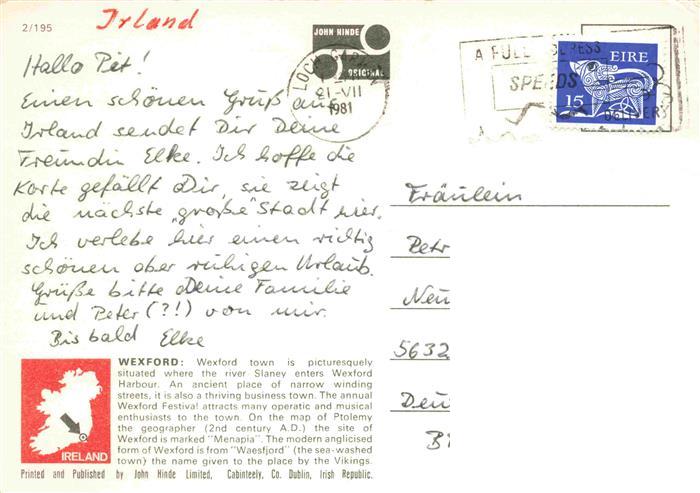 2/195
Irland
JOHN HINDE
ORIGINAL
21-VII
1981
A FULL
SPEEDS
DELIVERY
EIRE
15
Hallo Pet!
Einen schönen Gruß aus
Irland sendet Dir Deine
Freundin Elke. Ich hoffe die
Karte gefällt Dir, sie zeigt
die nächste „große" Stadt hier.
Ich verlebe hier einen richtig
schönen aber ruhigen Urlaub.
Grüße bitte Deine Familie
und Peter (?!) von mir.
Bis bald Elke
Fräulein
Petr
Neu
5632
Deu
WEXFORD: Wexford town is picturesquely
situated where the river Slaney enters Wexford
Harbour. An ancient place of narrow winding
streets, it is also a thriving business town. The annual
Wexford Festival attracts many operatic and musical
enthusiasts to the town. On the map of Ptolemy
the geographer (2nd century A.D.) the site of
Wexford is marked "Menapia". The modern anglicised
form of Wexford is from "Waesfjord" (the sea-washed
town) the name given to the place by the Vikings.
IRELAND
Printed and Published by John Hinde Limited, Cabinteely, Co. Dublin, Irish Republic.